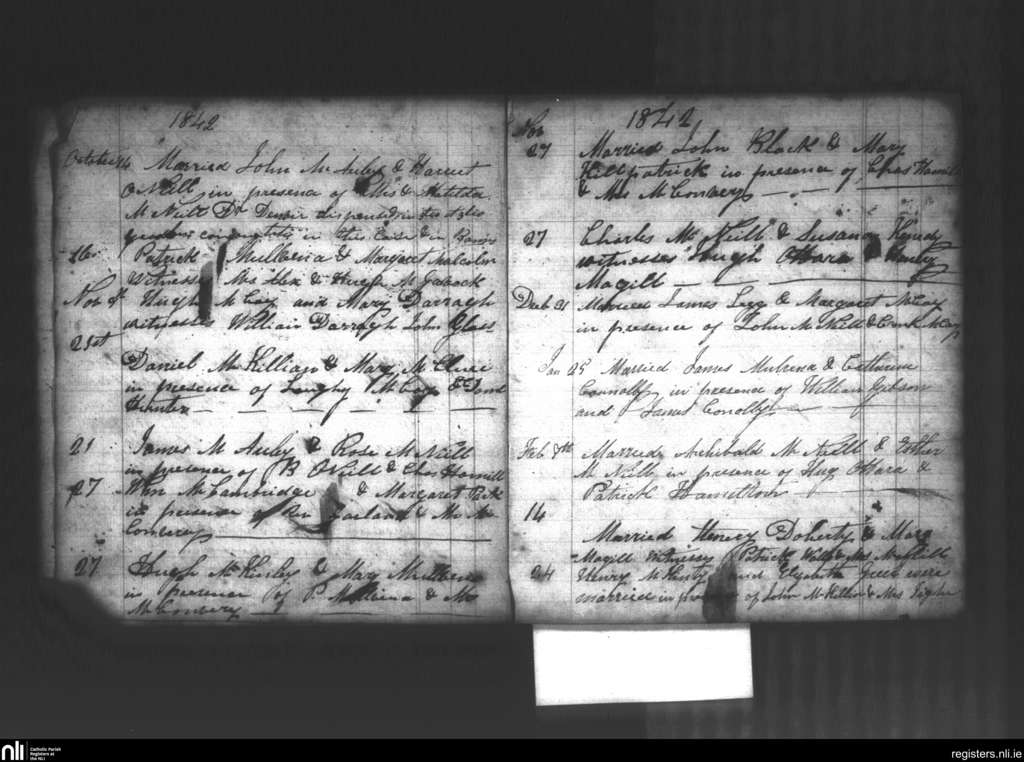 1842
October 16 Married John McAuley & Harriet
O'Neill in presence of & Matilda
McNeill Dr Denvir dispensed in the
in this case & in
Patrick Mulvina & Margaret Malcolm
witnesses Mrs Alex & Hugh
Nov 4th Hugh McCay and Mary Darragh
witnesses William Darragh John Glass
21st
Daniel McKillian & Mary McClure
in presence of McCay &
Hunter
21 James McAuley & Rose McNeill
in presence of B O'Neill & Chas Hamill
27 Wm McCambridge & Margaret Park
in presence of Garland & Mr Mc
Conwery
27 Hugh McKinley & Mary
in presence of P Mulvina & Mr
McConwery
1842
Nov
27 Married John Black & Mary
Killpatrick in presence of Chas Hamill
& Mrs McConwery
27 Charles McNeill & Susanna Kenedy
witnesses Hugh O'Hara &
Magill
Decb 31 Married James Legg & Margaret McCay
in presence of John McNeill & McCay
Jan 25 Married James Mulvina & Catherine
Connolly in presence of William Gibson
and James Conolly
Feb 8th Married Archibald McNeill & Esther
McNeill in presence of Hug O'Hara &
Patrick Hamilton
14
Married Henery Doherty & Mary
Magill Witnessey Patrick
24 Henry McHenry and Elizabeth were
married in presence of John & Mrs
nli
Catholic Parish
Registers at
the NLI
registers.nli.ie